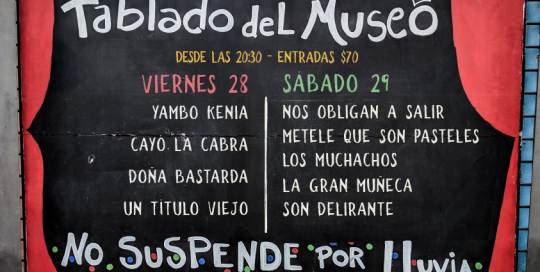 Tablado del Museo
DESDE LAS 20:30 - ENTRADAS $70
VIERNES 28
YAMBO KENIA
CAYÓ LA CABRA
DOÑA BASTARDA
UN TÍTULO VIEJO
SÁBADO 29
NOS OBLIGAN A SALIR
METELE QUE SON PASTELES
LOS MUCHACHOS
LA GRAN MUÑECA
SON DELIRANTE
NO SUSPENDE POR LLUVIA